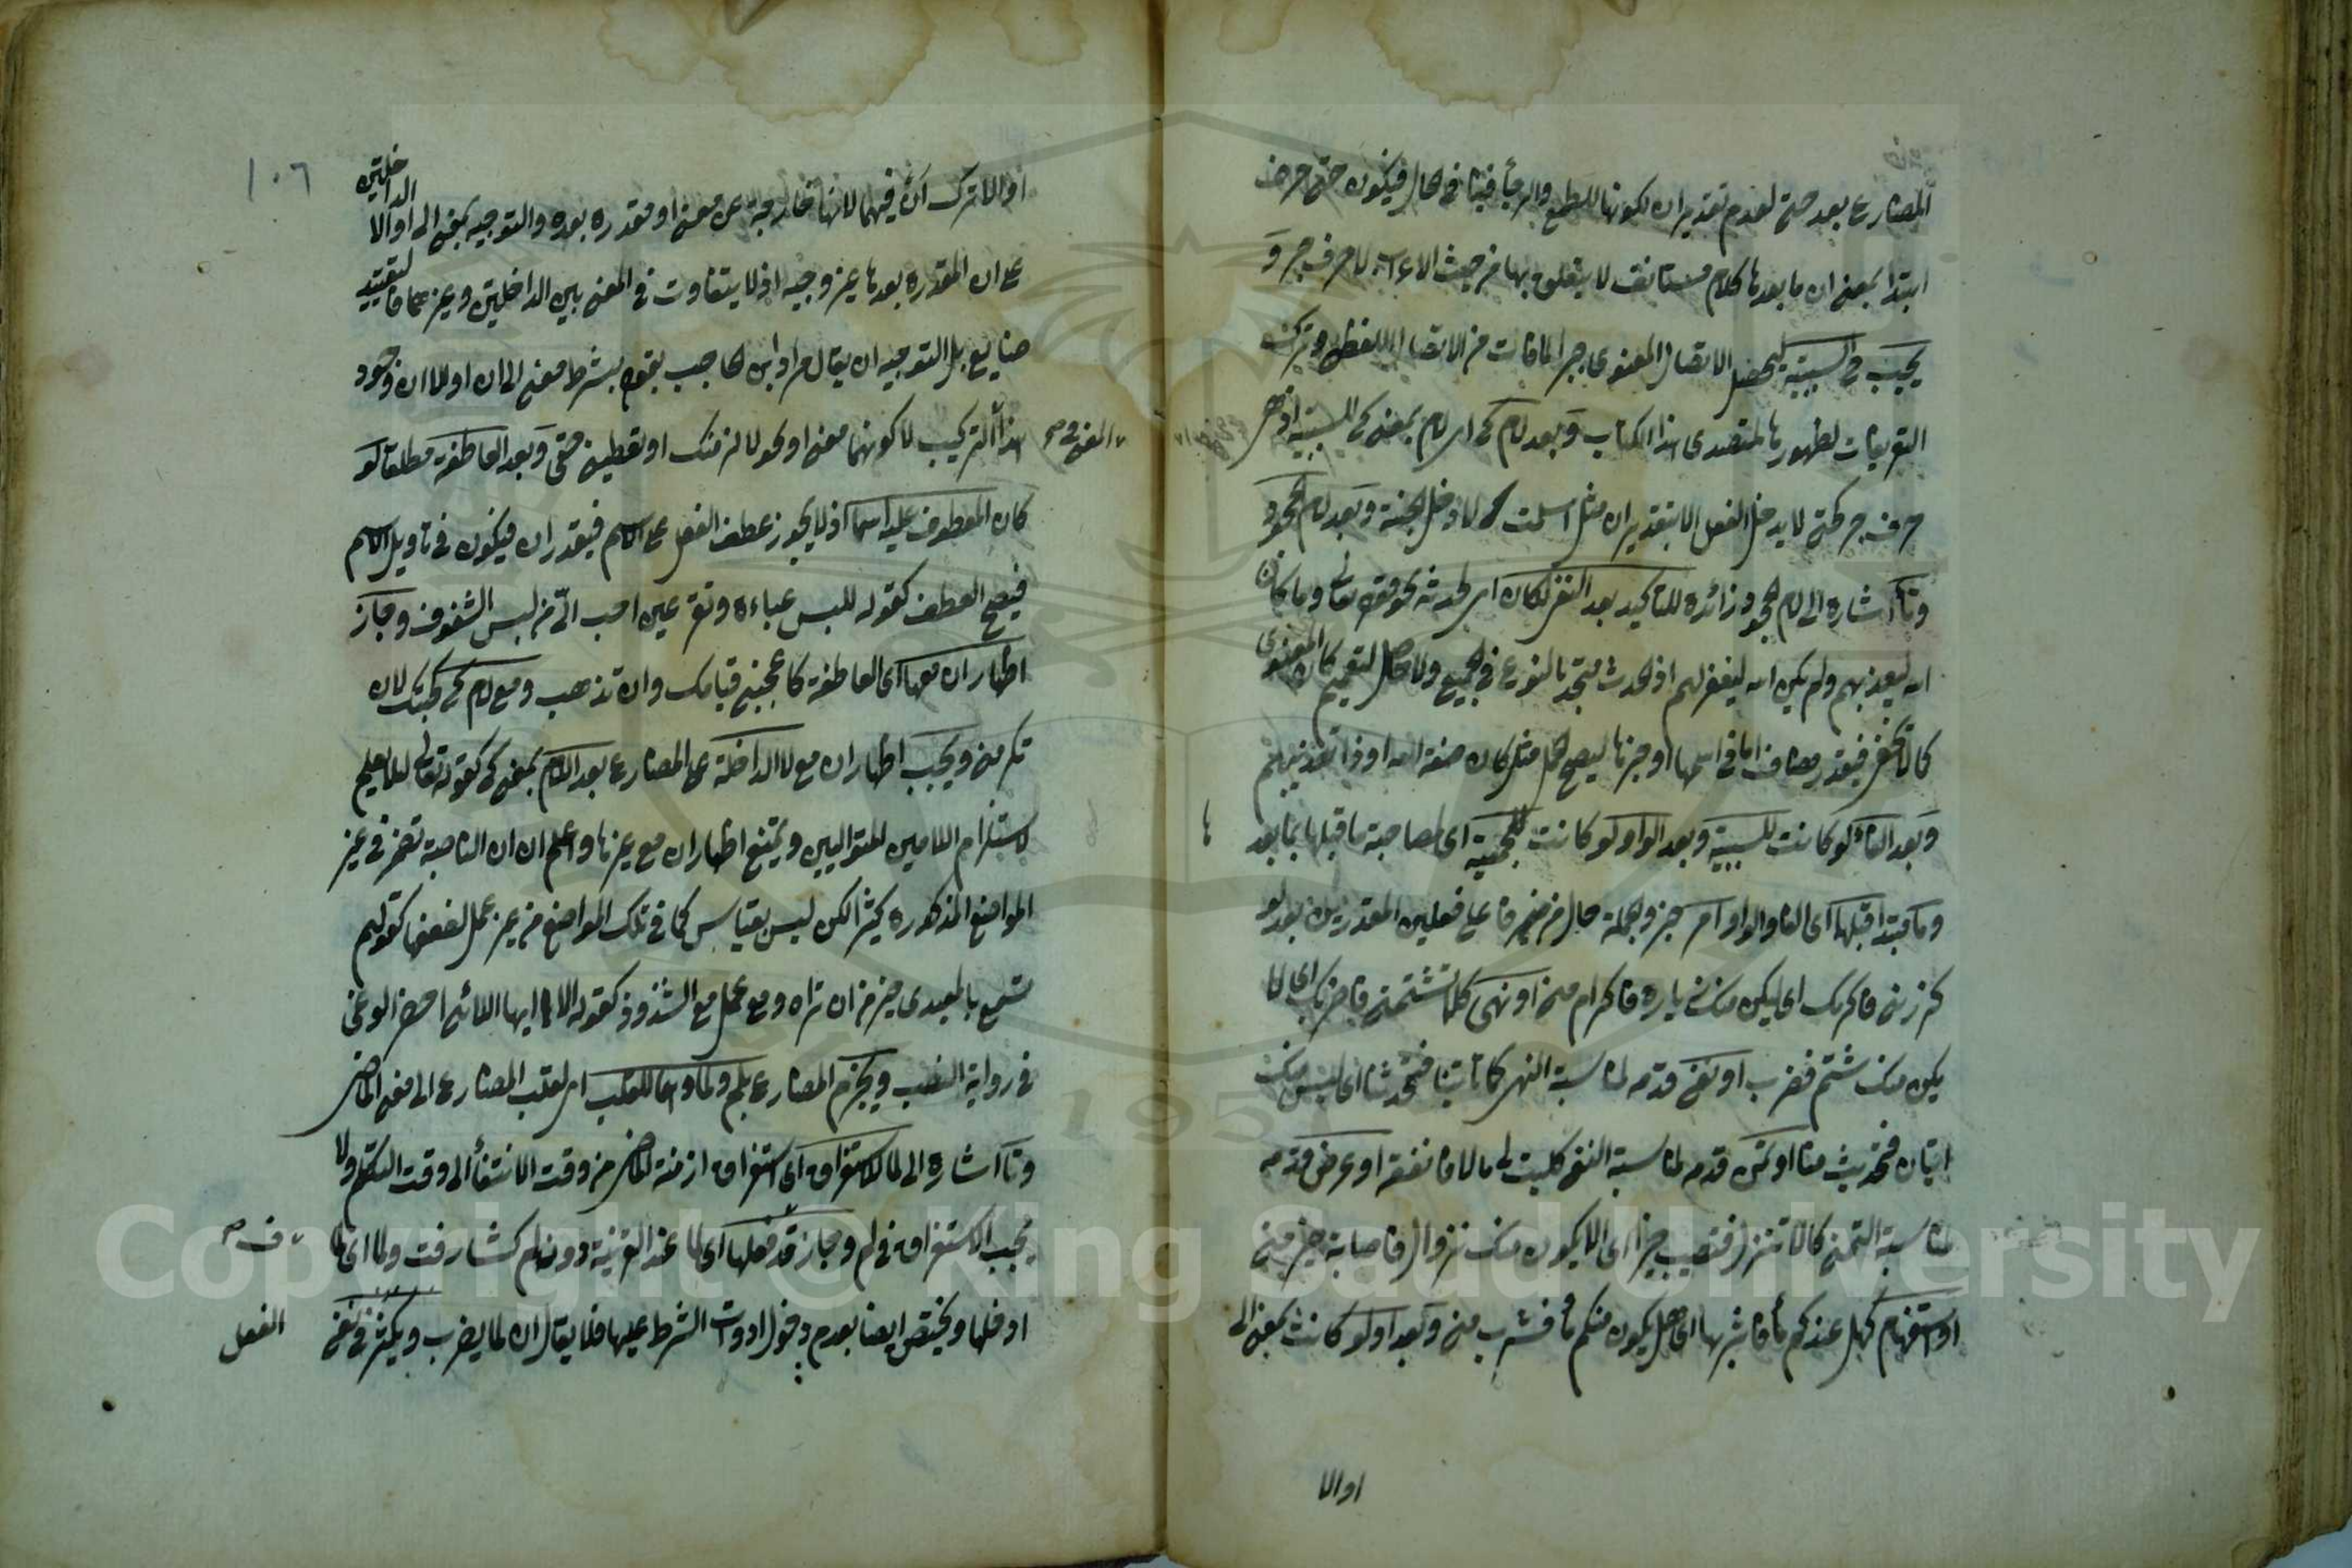 المضارع بعد حتى لعدم تقدير ان لكونها للطمع والرجأ فينافى الحال فيكون حتى حرف
ابتدا بمعنى ان ما بعدها كلام مستانف لا يتعلق بها من حيث الاعراب لا حرف جر و
يجب فى السببية ليحصل الاتصال المعنوى جبر المافات من الاتصال اللفظى وتركت
التعريفات لظهورها لمقتدى هذا الكتاب وبعد لام كى اى لام بمعنى كى للسببية
حرف جر كحتى لا يدخل الفعل الا بتقدير ان مثل اسلمت لادخل الجنة وبعد لام الجحود
اشاره الى لام الجحود زائده للتاكيد بعد النفى لكان اى لحدثه نحو قوله تعالى وما كان
الله ليعذبهم ولم يكن الله ليغفر لهم
فيقدر مضاف اما فى اسمها او خبرها ليصح الحمل مثل ما كان صفة الله او ذا تعذيبهم
وبعد الفاء لو كانت للسببية وبعد الواو لو كانت للجمعية اى لمصاحبة ما قبلها بما بعد
قبلها اى الفا والواو امر
كزرنى فاكرمك اى ليكن منك زيارة فاكرام منى او نهى كلا تشتمنى فاضربك اى لا
يكن منك شتم فضرب او نفى قدمه لمناسبة النهى كما تاتينا فتحدثنا اى ليس منك
اتيان فتحديث منا او تمن قدمه لمناسبة النفى كليت لى مالا فانفقه او عرض قدمه
لمناسبة التمنى كالا تنزل فتصيب خيرا اى الا يكون منك نزول فاصابة خير منى
او استفهام كهل عندكم مأ فاشربها اى هل يكون منكم مأ فشرب منى وبعد او لو كانت بمعنى الى
او الا
١٠٦
او الا ترك ان فيهما لانها خارجة عن معنى او مقدره بعده والتوجيه بمعنى الى او الا الداخلتين
على ان المقدره بعدها غير وجيه اذ لا يتفاوت فى المعنى بين الداخلتين وغيرهما فالتقييد
ضايع بل التوجيه ان يقال مراد ابن الحاجب بقوله بشرط معنى الى ان او الا ان وجود
المعنى فى هذا التركيب لا كونهما معنى او نحو لالزمنك او تعطينى حقى وبعد العاطفة مطلقا لو
كان المعطوف عليه اسما اذ لا يجوز عطف الفعل على الاسم فيقدر ان فيكون فى تاويل الاسم
فيصح العطف كقوله للبس عباءة وتقر عينى احب الى من لبس الشفوف وجاز
اظهار ان معها اى العاطفة كاعجبنى قيامك وان تذهب ومع لام كى كجئتك لان
تكرمنى ويجب اظهار ان مع لا الداخلة على المضارع بعد اللام بمعنى كى كقوله تعالى لئلا يعلم
لاستلزام اللامين المتواليين ويمتنع اظهار ان مع غيرها واعلم ان ان الناصبة تضمر فى غير
المواضع المذكورة كثيرا لكن ليس بقياس كما فى تلك المواضع من غير عمل لضعفها كقولهم
تسمع بالمعيدى خير من ان تراه ومع عمل مع الشذوذ كقوله الا ايها اللائمى احضر الوغى
فى رواية النصب ويجزم المضارع بلم ولما وهما لقلب اى لقلب المضارع الى معنى الماضى
اشاره الى لما لاستغراق اى استغراق ازمنة الماضى من وقت الانتفأ الى وقت التكلم ولا
يجب الاستغراق فى لم وجاز حذف فعلها اى لما عند القرينة دون لم كشارفت ولما اى لما
ادخلها ويختص ايضا بعدم دخول ادوات الشرط عليها فلا يقال ان لما يضرب ويكثر فى نفى
الفعل
Copyright © King Saud University
1957